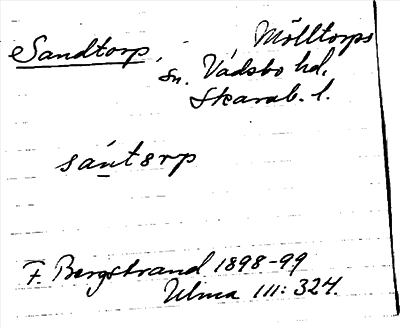 Sandtorp, Mölltorps
sn. Vadsbo hd,
Skarab. l.
sántorp
F. Bergstrand 1898-99
Ulma 111: 324.